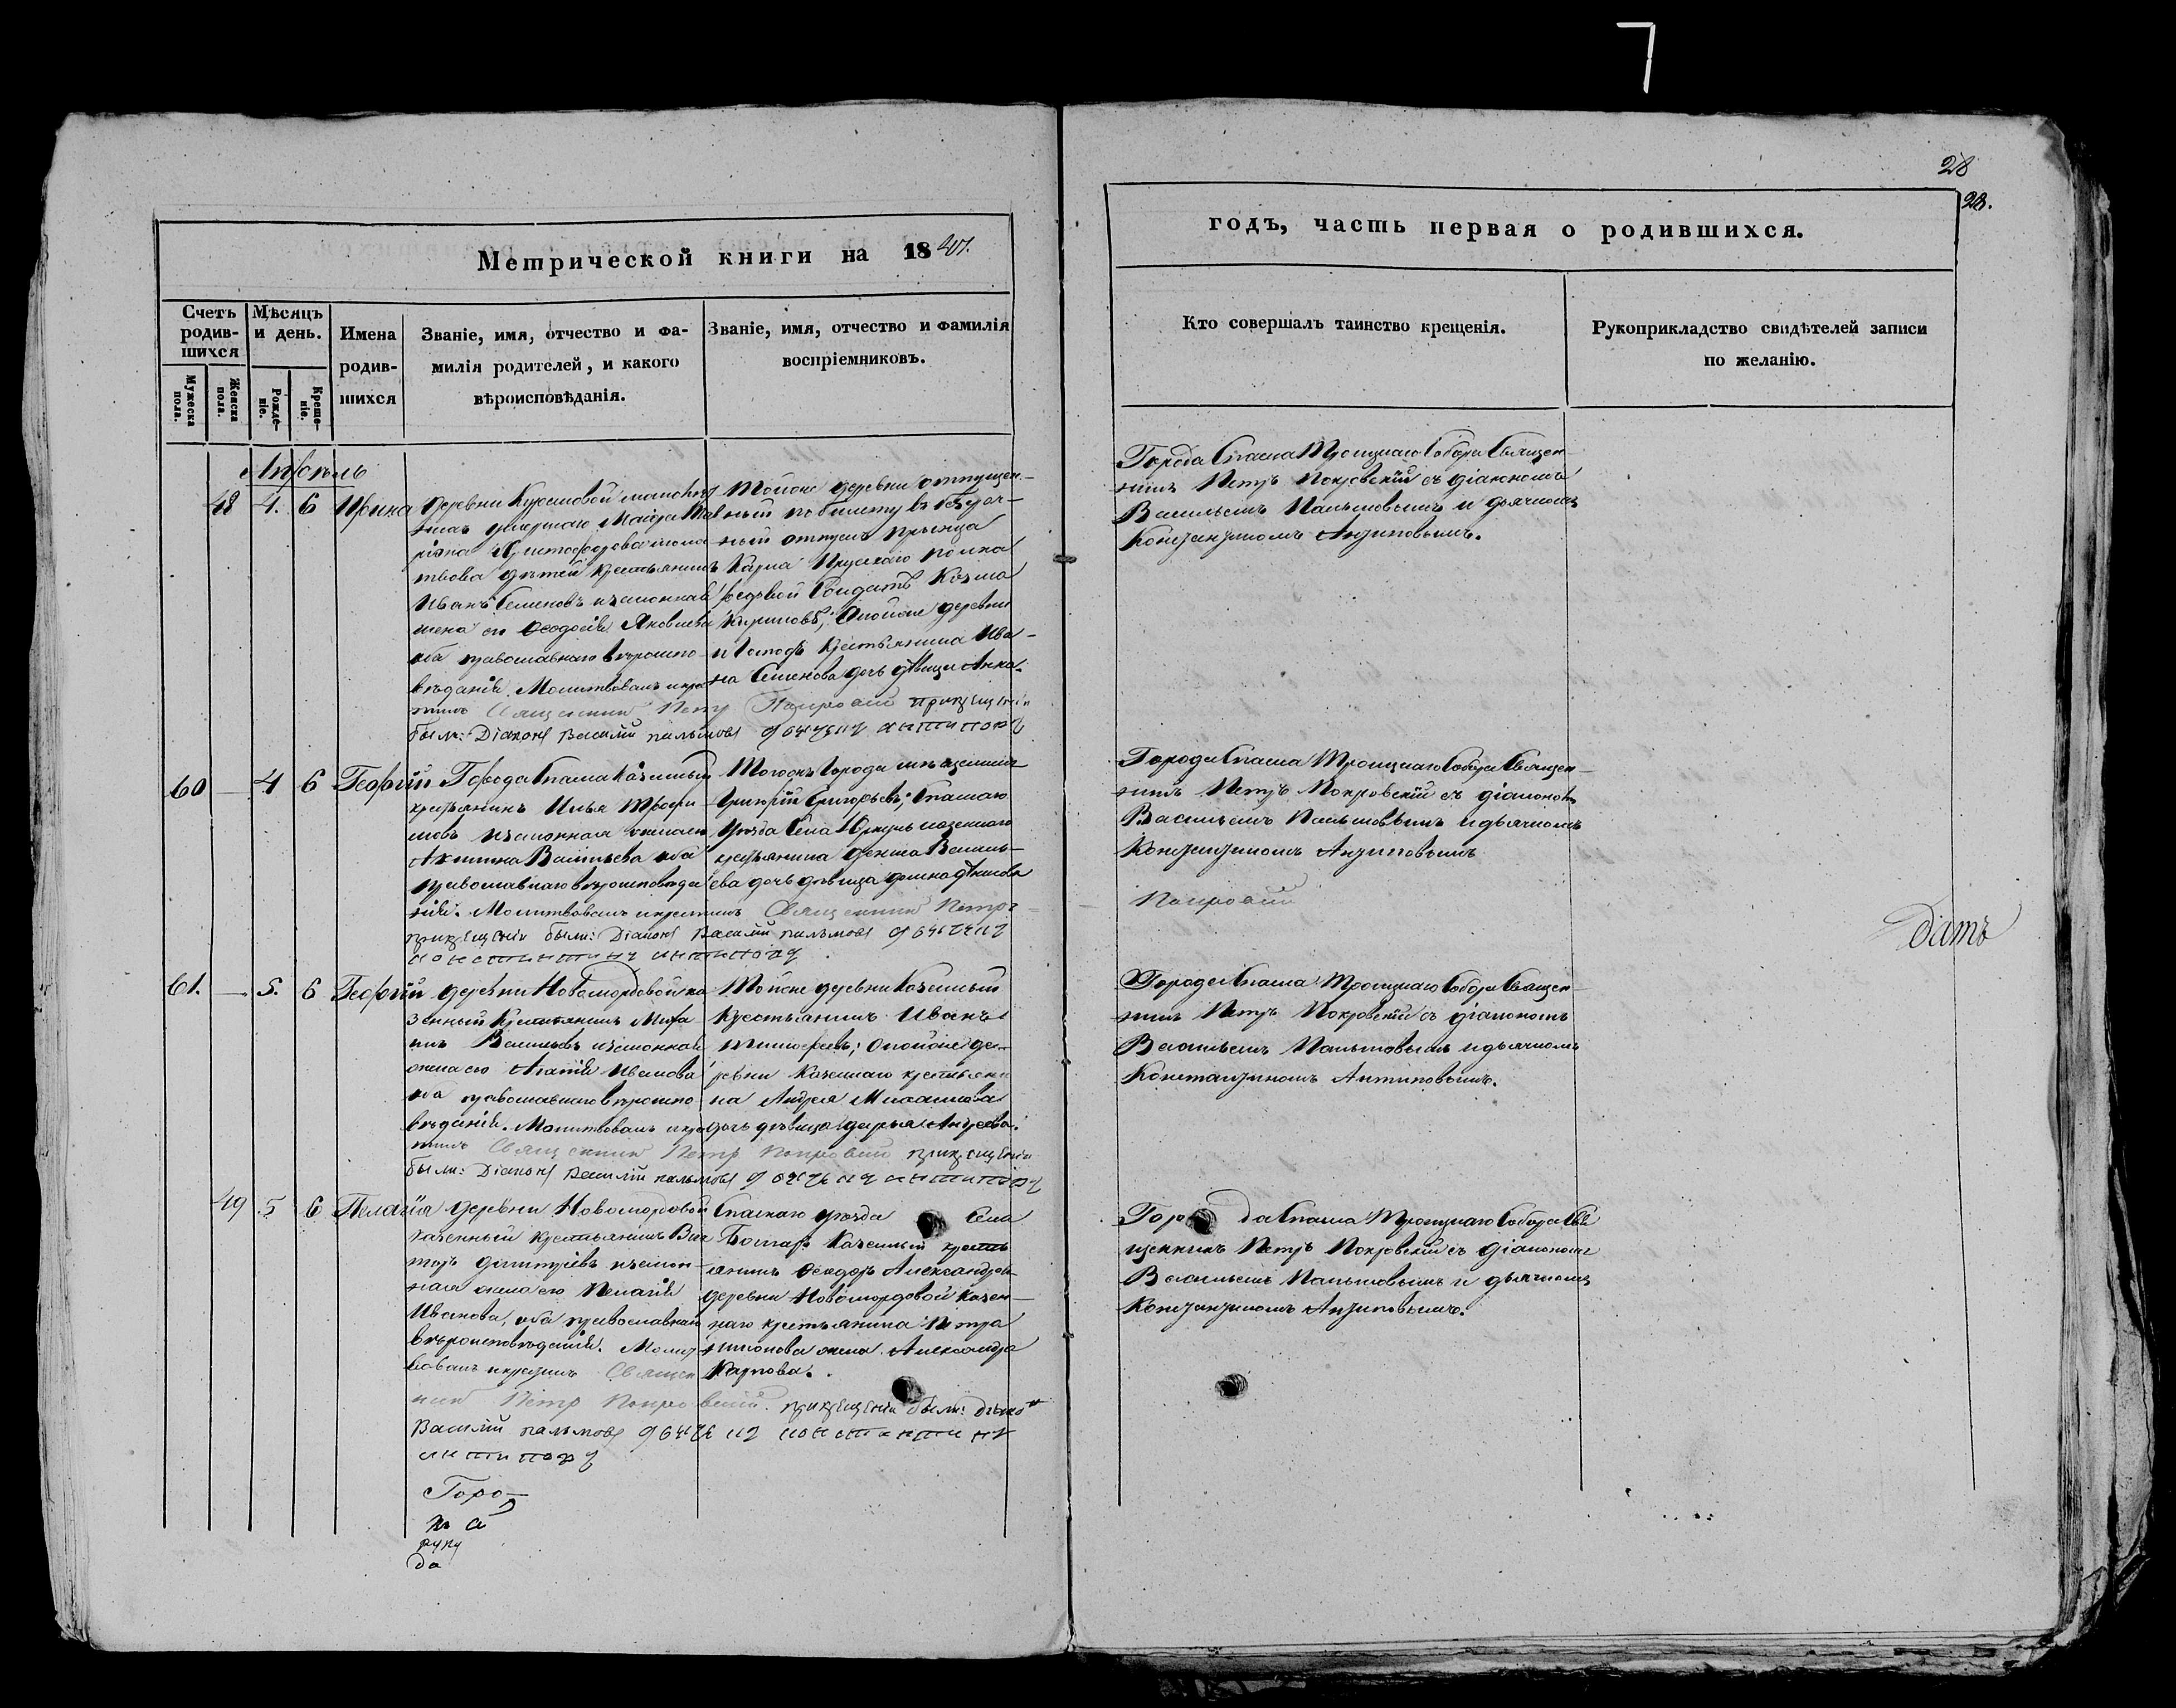 28
28.
Метрической книги на 1847.
годъ, часть первая о родившихся.
Счетъ родив-шихся
Мужеска пола.
Женска пола.
Мѣсяцъ и день.
Рожде-ніе.
Креще-ніе.
Имена родив-шихся
Званіе, имя, отчество и фа-
милія родителей, и какого
вѣроисповѣданія.
Званіе, имя, отчество и фамилія
воспріемниковъ.
Кто совершалъ таинство крещенія.
Рукоприкладство свидѣтелей записи
по желанію.
Апрѣль
48 4. 6 Ирина
деревни
умершаго Маіора
дѣтей крестьянинъ
Иванъ Семеновъ изаконная
жена его Ѳеодосія Яковлева
оба православнаго вѣроиспо-
вѣданія. Молитвовалъ и кре-
тилъ Священникъ Петръ Покровскій при крещеніи
были: Діаконъ Василій пальмовъ дьячекъ антиповъ
Тойже деревни отпущен-
ный по билету въ безсроч-
ный отпускъ принца
Карла Прускаго полка
рядовой Солдатъ Козма
Кириловъ; Онойже деревни
крестьянина Ива-
на Семенова дочь дѣвица Анна.
Города Спаска Троицкаго Собора Священ-
никъ Петръ Покровскій съ діакономъ
Васильемъ Пальмовымъ и дьячкомъ
Константиномъ Антиповымъ.
60 — 4 6 Георгій
Города Спаска Казенный
крестьянинъ Илья
новъ изаконная жена его
Акилина Васильева оба
православнаго вѣроисповѣда
нія. Молитвовалъ и крестилъ Священникъ Петръ
при крещеніи были: Діаконъ Василій пальмовъ дьячекъ
константинъ антиповъ
Тогожъ Города
Григорій Григорьевъ; Спаскаго
уѣзда Села Юркуль казеннаго
крестьянина Василь-
ева дочь дѣвица
Города Спаска Троицкаго Собора Священ-
никъ Петръ Покровскій съ діакономъ
Васильемъ Пальмовымъ и дьячкомъ
Константиномъ Антиповымъ
Покровскій
дать
61. — 5. 6 Георгій
деревни Новомордовой ка-
зенный Крестьянинъ
Васильевъ изаконная
жена его Агапія Иванова
оба православнаго вѣроиспо-
вѣданія. Молитвовалъ и кре-
тилъ Священникъ Петръ Покровскій при крещеніи
были: Діаконъ Василій пальмовъ дьячекъ антиповъ
Тойже деревни Казенный
Крестьянинъ Иванъ
Тимофеевъ; Онойже де-
ревни Казеннаго крестьяни
на Андрея
дочь дѣвица дарья Андреева.
Города Спаска Троицкаго Собора Священ-
никъ Петръ Покровскій съ діакономъ
Васильемъ Пальмовымъ и дьячкомъ
Константиномъ Антиповымъ.
49 5 6 Пелагія
деревни Новомордовой
казенный крестьянинъ Вик
торъ дмитріевъ изакон-
ная жена его Пелагія
Иванова, оба православнаго
вѣроисповѣданія. Молит
вовалъ и крестилъ Священ
никъ Петръ Покровскій. при крещеніи были: діаконъ
Василій пальмовъ дьячекъ константинъ
антиповъ
Спаскаго уѣзда Села
Казенный кресть
янинъ Ѳеодоръ Александровъ
деревни Новомордовой Казен-
наго крестьянина Петра
жена Александра
Карпова.
Города Спаска Троицкаго Собора Свя
щенникъ Петръ Покровскій съ діакономъ
Васильемъ Пальмовымъ и дьячкомъ
Константиномъ Антиповымъ.
Горо-
къ сей
руку
да